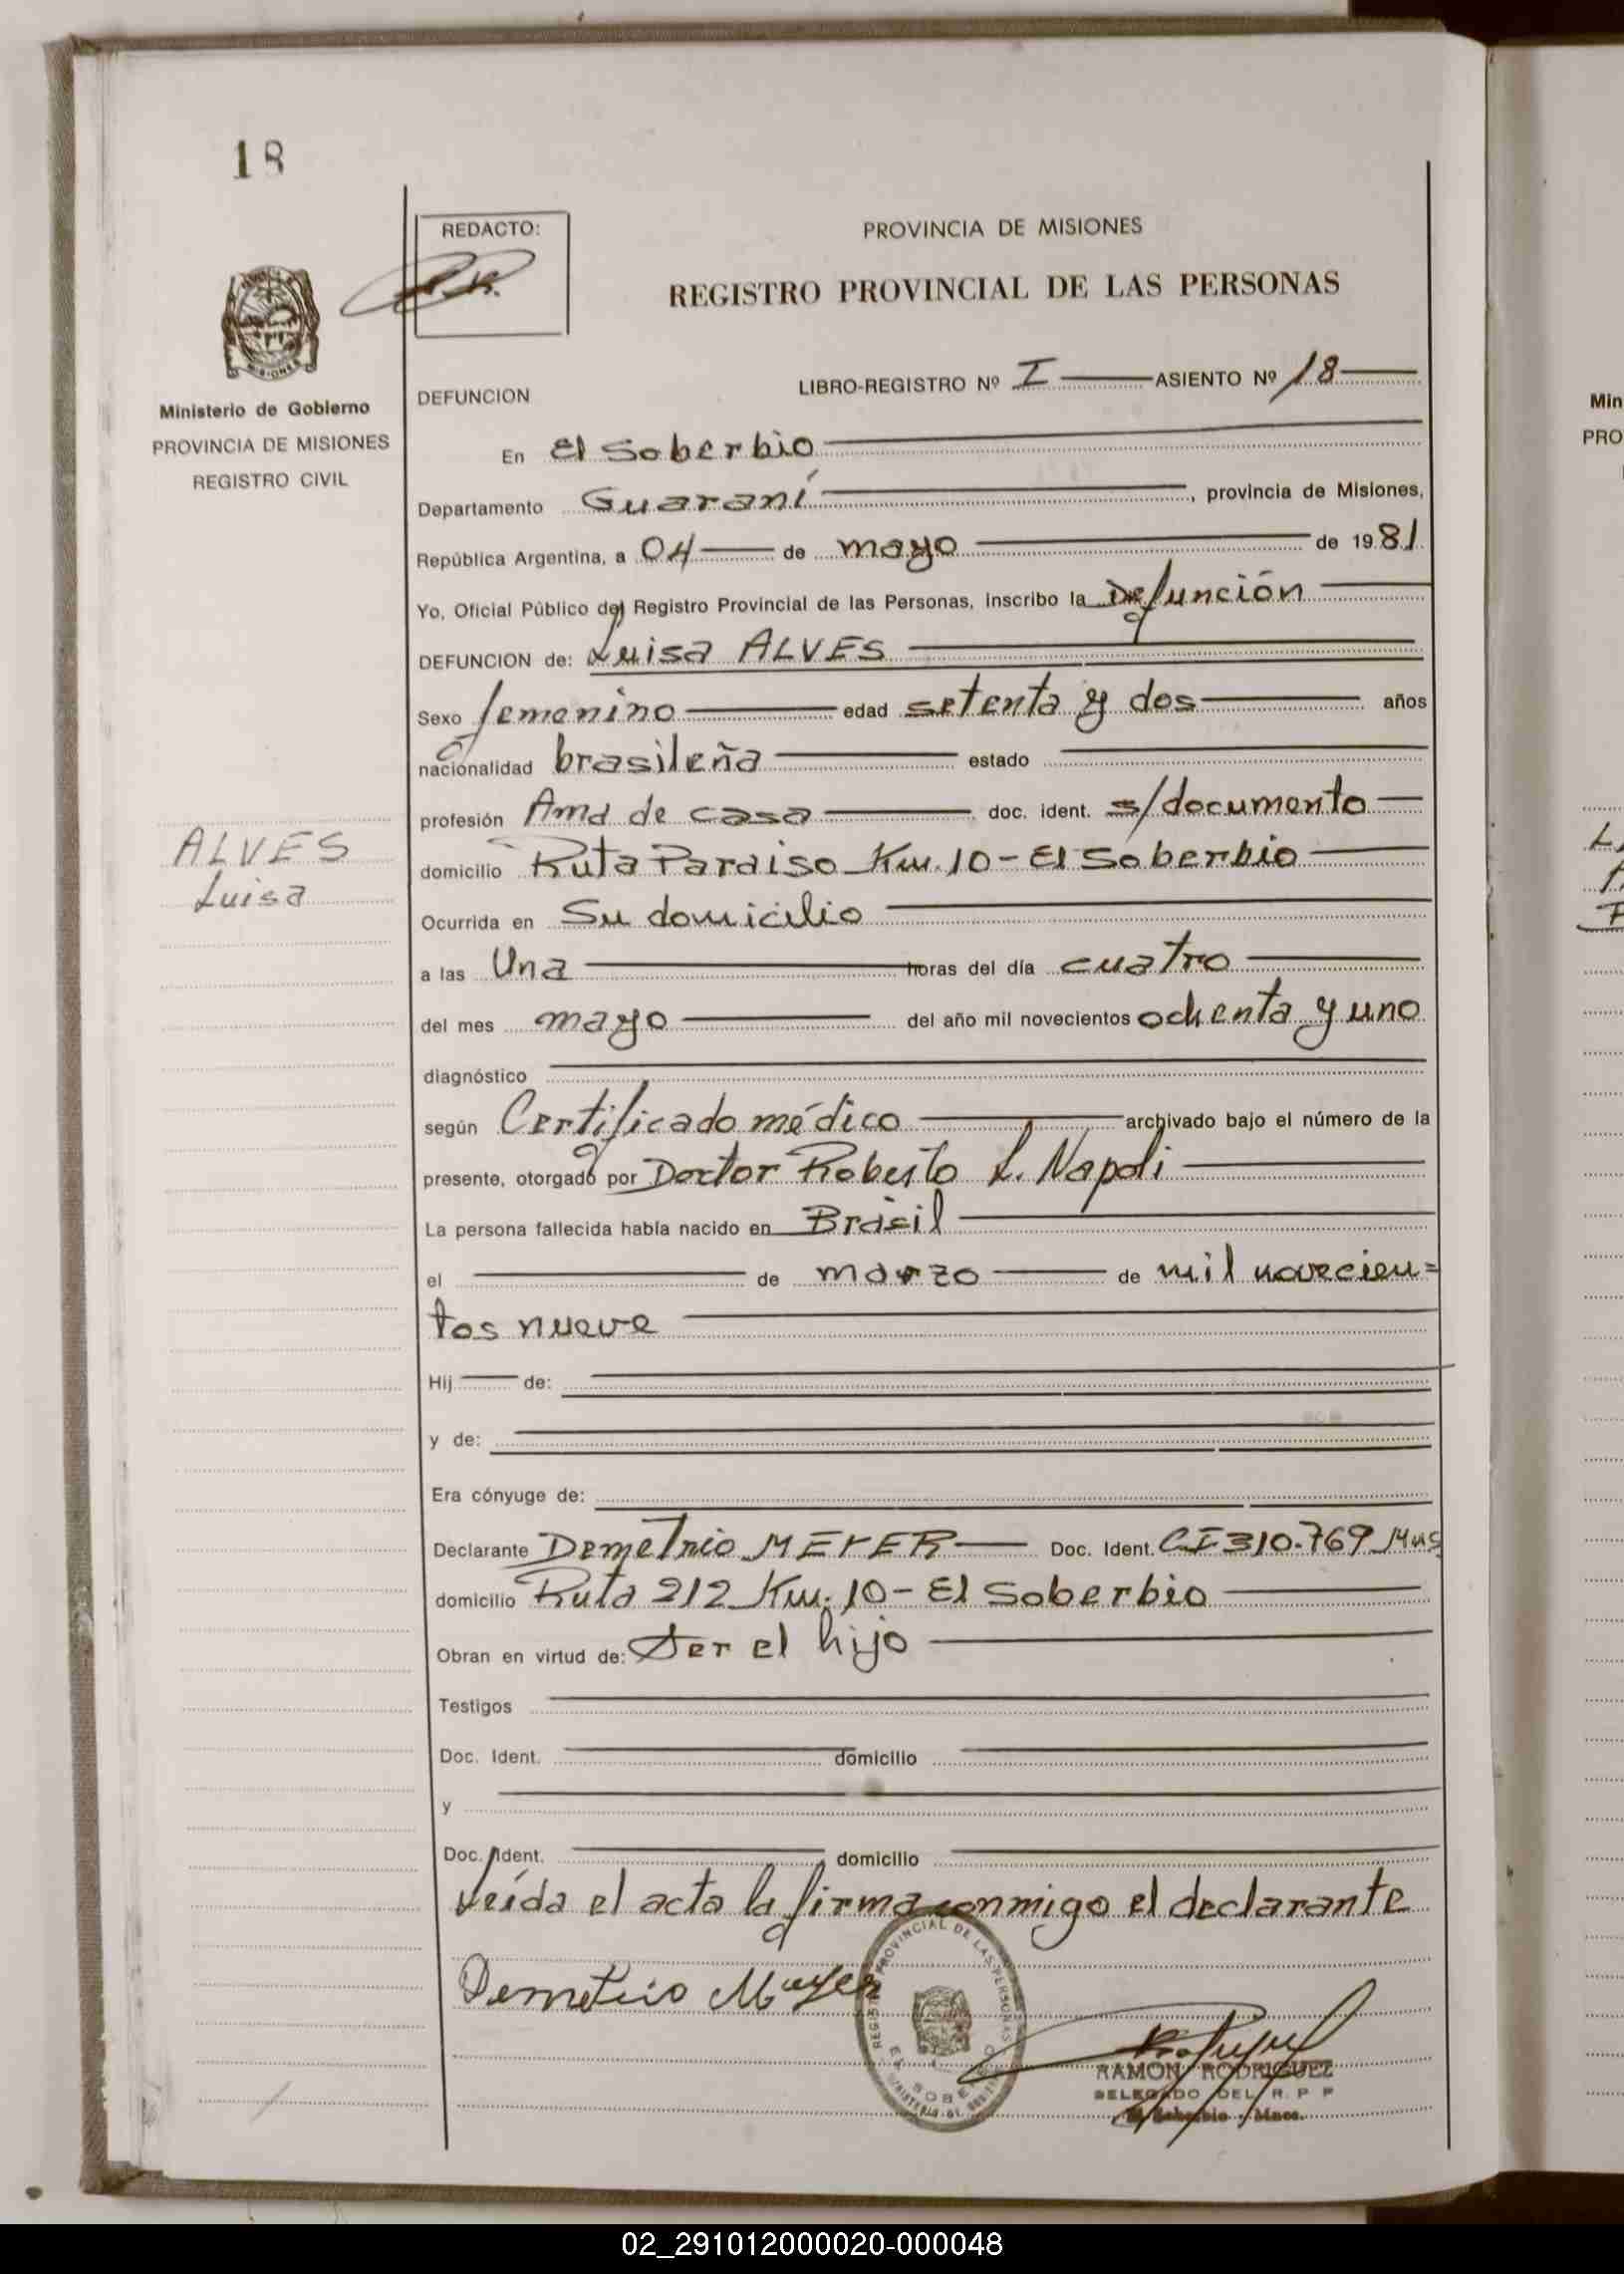 18
REDACTO:
PROVINCIA DE MISIONES
REGISTRO PROVINCIAL DE LAS PERSONAS
Ministerio de Gobierno
PROVINCIA DE MISIONES
REGISTRO CIVIL
DEFUNCION
LIBRO-REGISTRO Nº I ASIENTO Nº 18
En El Soberbio
Departamento Guaraní, provincia de Misiones,
República Argentina, a 04 de mayo de 1981
Yo, Oficial Público del Registro Provincial de las Personas, inscribo la Defunción
DEFUNCION de: Luisa ALVES
Sexo femenino edad setenta y dos años
nacionalidad brasileña estado
profesión Ama de casa doc. ident. s/documento
ALVES
Luisa
domicilio Ruta Paraiso Km. 10 - El Soberbio
Ocurrida en Su domicilio
a las Una horas del día cuatro
del mes mayo del año mil novecientos ochenta y uno
diagnóstico
según Certificado médico archivado bajo el número de la
presente, otorgado por Doctor Roberto L. Napoli
La persona fallecida había nacido en Brasil
el de marzo de mil novecien=
tos nueve
Hij de:
y de:
Era cónyuge de:
Declarante Demetrio MEYER Doc. Ident. CI 310.769 Mns
domicilio Ruta 212 Km. 10 - El Soberbio
Obran en virtud de: Ser el hijo
Testigos
Doc. Ident. domicilio
y
Doc. Ident. domicilio
Leída el acta la firma conmigo el declarante
Demetrio Meyer
REGISTRO PROVINCIAL DE LAS PERSONAS
RAMON RODRIGUEZ
DELEGADO DEL R. P. P
El Soberbio - Mnes.
02_291012000020-000048